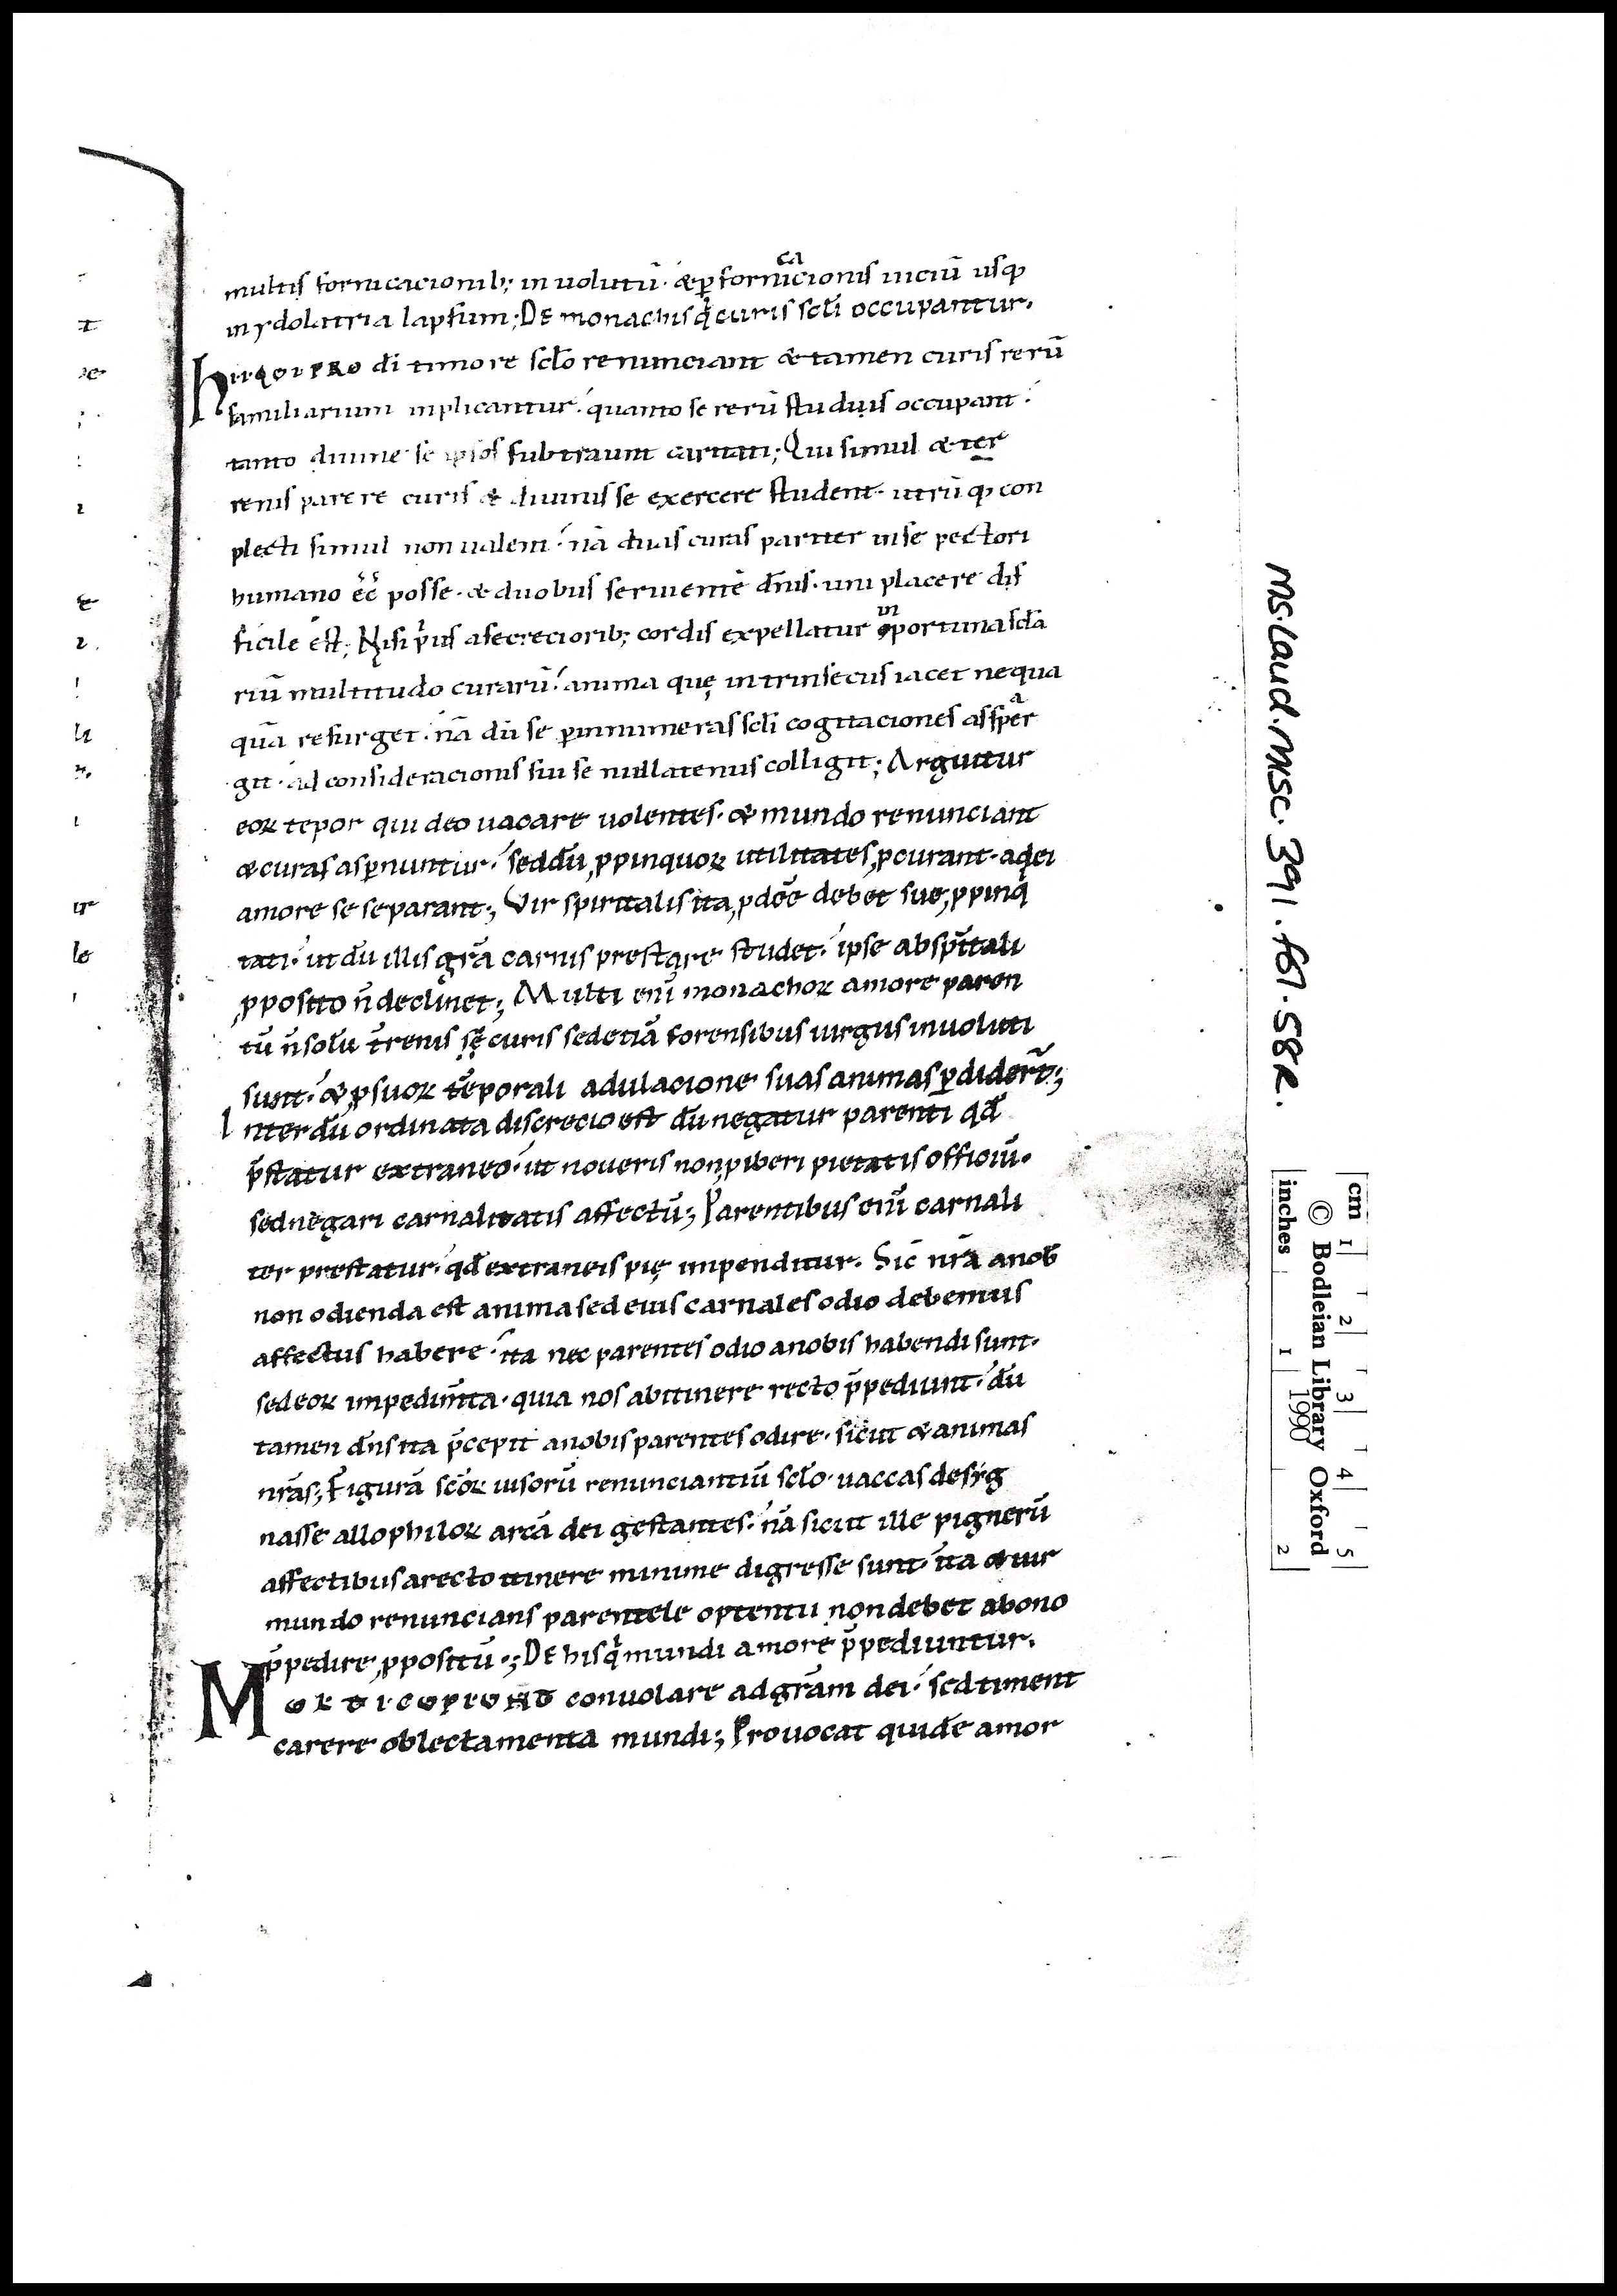 multis fornicacionib; inuolutū· & ꝑ fornicacionis uiciū usq;
in ydolatria lapsum; De monachis q̇ curis sc̄li occupantur.
Hii qui pro d̄i timore sc̄lo renunciant & tamen curis rerū
familiarium inplicantur· quanto se rerū studiis occupant·
tanto diuine se ipsos subtraunt caritati; Qui simul & ter
renis parere curis & diuinis se exercere student· utrūq; con
plecti simul non ualent· nā duas curas pariter inse pectori
humano ēē posse· & duobus seruiente d̄nis· uni placere dif
ficile ēst; Nisi p̓us a secrecciorib; cordis expellatur inportuna sc̄la
riū multitudo curarū· anima quę intrinsecus iacet nequa
quā resurget· nā dū se ꝑ innumeras sc̄li cogitaciones asspar
git· ad consideracionis sui se nullatenus colligit; Arguitur
eoꝝ tepor qui deo uacare uolentes· & mundo renunciant
& curas asꝑnuntur· sed dū ꝓpinquoꝝ utilitates ꝓcurant· a dei
amore se separant; Vir spiritalis ita ꝓdēē debet sue ꝓpinq̇
tati· ut dū illis gr̄a carnis prestare studet· ipse ab sp̄itali
ꝓposito n̄ declinet; Multi eni̅ monachoꝝ amore paren
tū n̄ solū t̄renis sę curis sed etiā forensibus iurgiis inuoluti
sunt· & ꝓ suoꝝ tēporali adulacione suas animas ꝑdider̄;
Inter dū ordinata discrecio est dū negatur parenti qd̄
p̄statur extraneo· ut noueris non ꝓiberi pietatis officiū.
sed negari carnalitatis affectū; Parentibus eni̅ carnali
ter prestatur· qd̄ extraneis pię impenditur. Sic̄ nr̄a a nob̄
non odienda est anima sed eius carnales odio debemus
affectus habere· ita nec parentes odio a nobis habendi sunt.
sed eoꝝ impedim̄ta· quia nos ab itinere recto p̄pediunt· dū
tamen d̄ns ita p̄cepit a nobis parentes odire· sicut & animas
nr̄as; Figurā sc̄oꝝ uisorū renunciantiū sc̄lo· uaccas desig
nasse allophiloꝝ arcā dei gestantes· nā sicut ille pignerū
affectibus a recto itinere minime digresse sunt· ita & uir
mundo renuncians parentele optentu non debet a bono
p̄pedire ꝓpositū·; De his q̇ mundi amore p̄pediuntur.
M
carere oblectamenta mundi; Prouocat quidē amor
ms. Laud. misc. 391. fol. 58R.
cm 1 2 3 4 5
© Bodleian Library Oxford
1990
inches 1 2